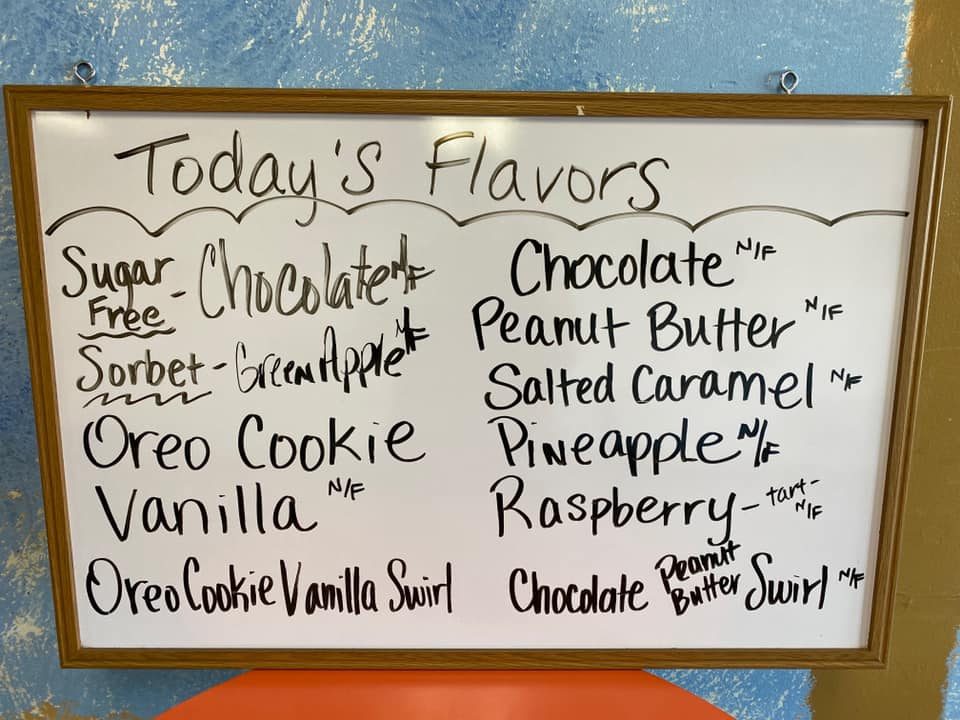 Today's Flavors
Sugar Free - Chocolate N/F
Sorbet - Green Apple N/F
Oreo Cookie
Vanilla N/F
Oreo Cookie Vanilla Swirl
Chocolate N/F
Peanut Butter N/F
Salted Caramel N/F
Pineapple N/F
Raspberry - tart - N/F
Chocolate Peanut Butter Swirl N/F